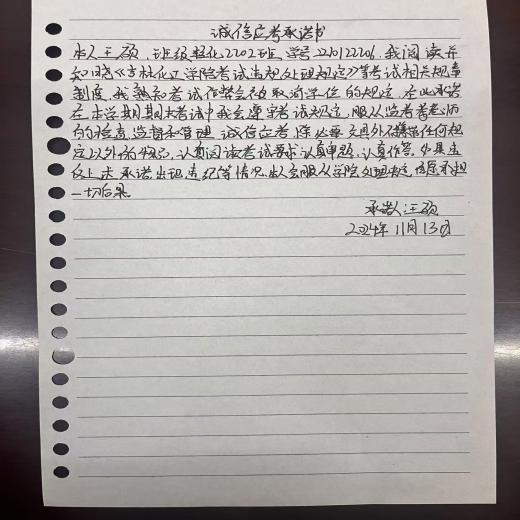 诚信应考承诺书
本人王硕,班级轻化2202班,学号2210122206,我阅读并
知晓《吉林化工学院考试违规处理规定》等考试相关规章
制度,我熟知考试作弊会被取消学位的规定,在此承诺
在本学期期末考试中我会遵守考试规定,服从监考老师
的检查,监督和管理,诚信应考,除必要文具外不携带任何规
定以外的物品,认真阅读考试要求,认真审题,认真作答。如果
以上承诺出现违纪等情况,本人会服从学院处理决定,愿承担
一切后果。
承诺人:王硕
2024年11月13日